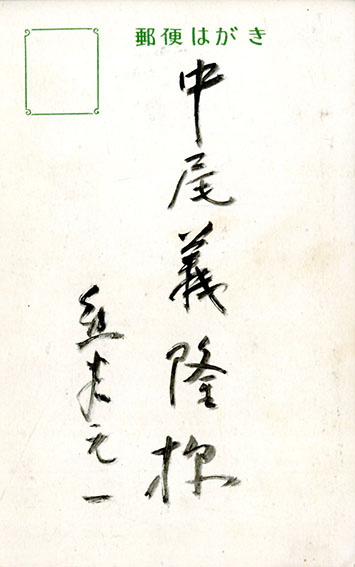 郵便はがき
中尾義隆様
近藤元一